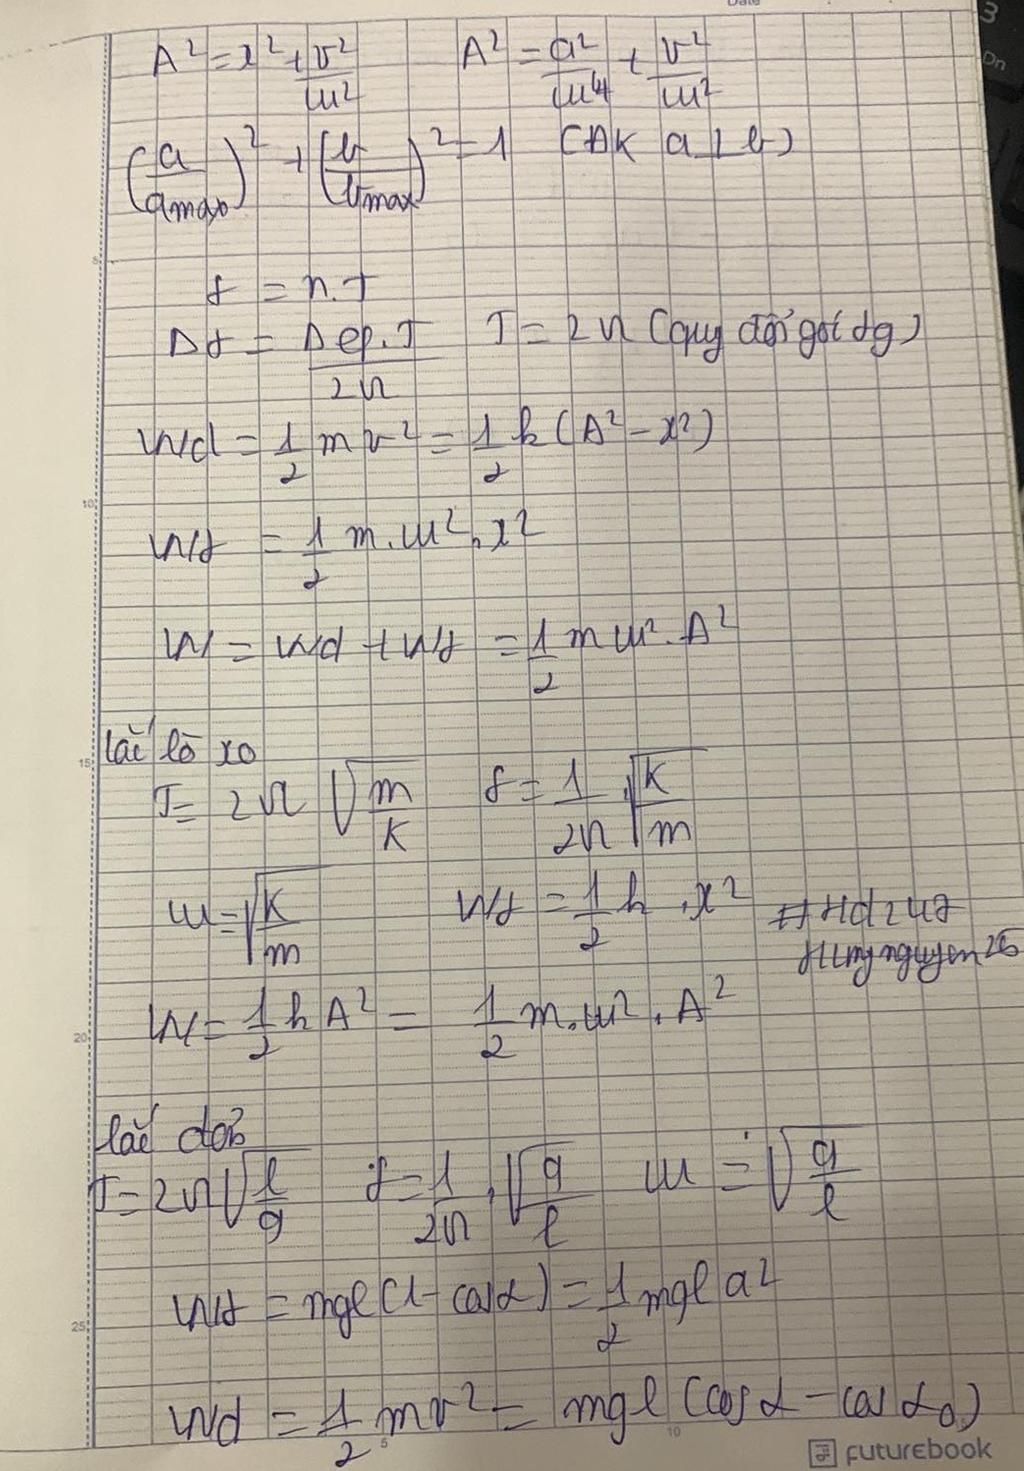 Date
3
Dn
A² = x² + v²/ω² A² = a²/ω⁴ + v²/ω²
(a/amax)² + (v/vmax)² = 1 (ĐK a ⊥ v)
5
t = n.T
Δt = Δφ.T/2π T = 2π (quy đổi góc tg)
Wđ = 1/2 mv² = 1/2 k(A² - x²)
10
Wt = 1/2 m.ω².x²
W = Wđ + Wt = 1/2 mω².A²
lắc lò xo
15
T = 2π √(m/k) f = 1/2π . √(k/m)
ω = √(k/m) Wt = 1/2 k.x²
W = 1/2 kA² = 1/2 m.ω².A²
20
lắc đơn
T = 2π√(l/g) f = 1/2π . √(g/l) ω = √(g/l)
Wt = mgl(1 - cosα) = 1/2 mglα²
25
Wđ = 1/2 mv² = mgl(cosα - cosα₀)
5 10
FUTUREBOOK